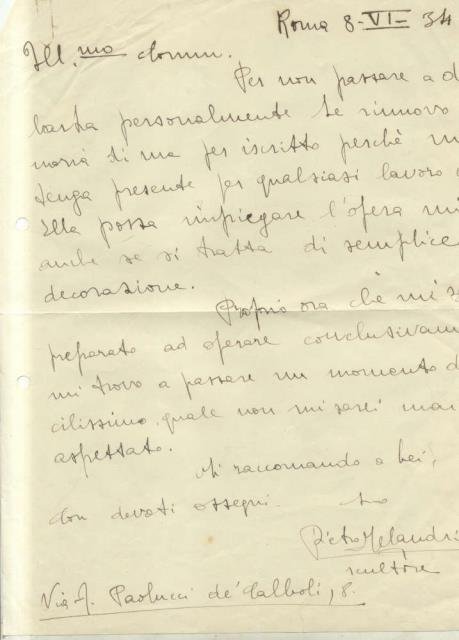 Roma 8-VI-34
Ill.mo Comm.
Per non passare a d
basta personalmente Le rinnovo
perchè
tenga presente per qualsiasi lavoro
Ella possa impiegare l'opera mi
anche se si tratta di semplice
decorazione.
Proprio ora che mi s
preparato ad operare conclusivam
mi trovo a passare un momento d
cilissimo quale non mi sarei mai
aspettato.
Mi raccomando a Lei,
Con devoti ossequi. Suo
Pietro Melandri
scultore
Via F. Paolucci de' Calboli, 8.